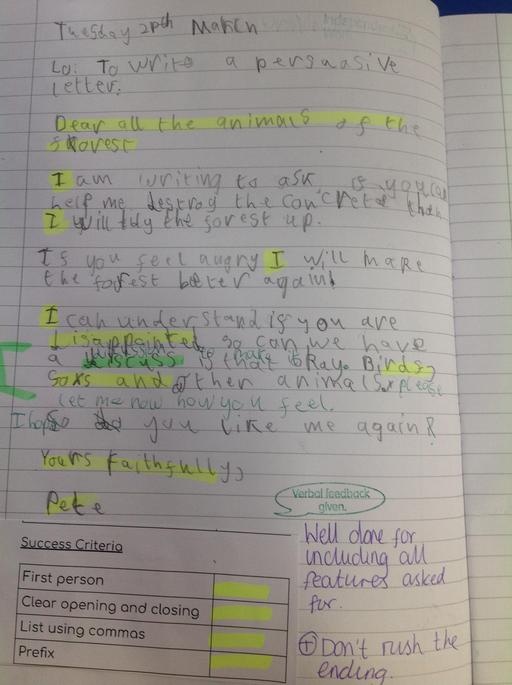 Tuesday 20th March
Lo: To write a persuasive
letter.
Dear all the animals of the
forest
I am writing to ask if you can
help me destroy the concrete then
I will tidy the forest up.
If you feel angry I will make
the forest better again!
I can understand if you are
disappointed so can we have
a discuss is that okay. Birds,
foxs and other animals, please
let me now how you feel.
I hope you like me again?
Yours faithfully,
Pete
Verbal feedback
given.
Success Criteria
First person
Clear opening and closing
List using commas
Prefix
Well done for
including all
features asked
for.
+ Don't rush the
ending.